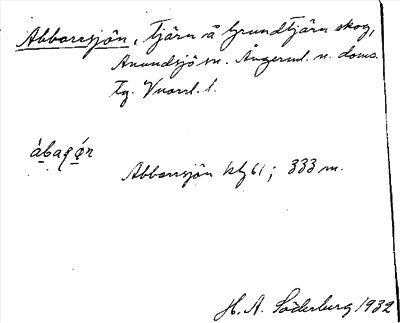 Abborrsjön, tjärn å Grundtjärn skog,
Anundsjö sn. Ångerml. n. doms.
Tg. Vnorrl. l.
ábaqǿn
Abborrsjön kbl 61; 333 m.
H. A. Söderberg 1932